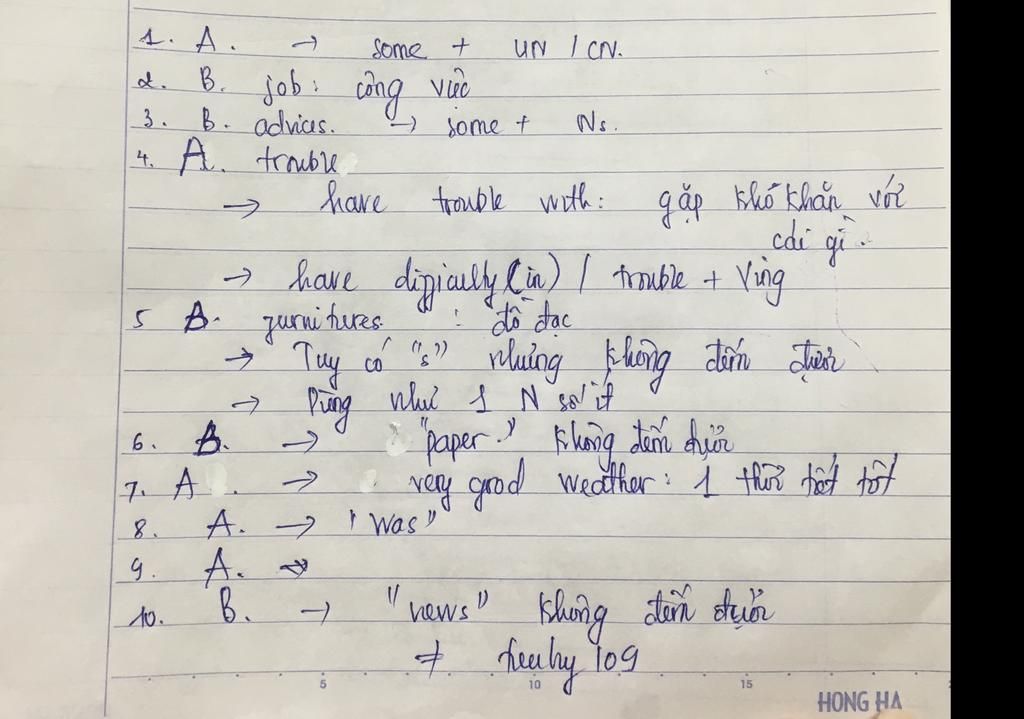 1. A. → some + UN / CN.
2. B. job: công việc
3. B. advices. → some + Ns.
4. A. trouble
→ have trouble with: gặp khó khăn với
cái gì.
→ have difficulty (in) / trouble + Ving
5 B. furnitures : đồ đạc
→ Tuy có "s" nhưng không đếm được
→ Dùng như 1 N số ít
6. B. → "paper." không đếm được
7. A. → very good weather: 1 thời tiết tốt
8. A. → "was"
9. A. →
10. B. → "news" không đếm được
≠ 109
5 10 15
HONG HA